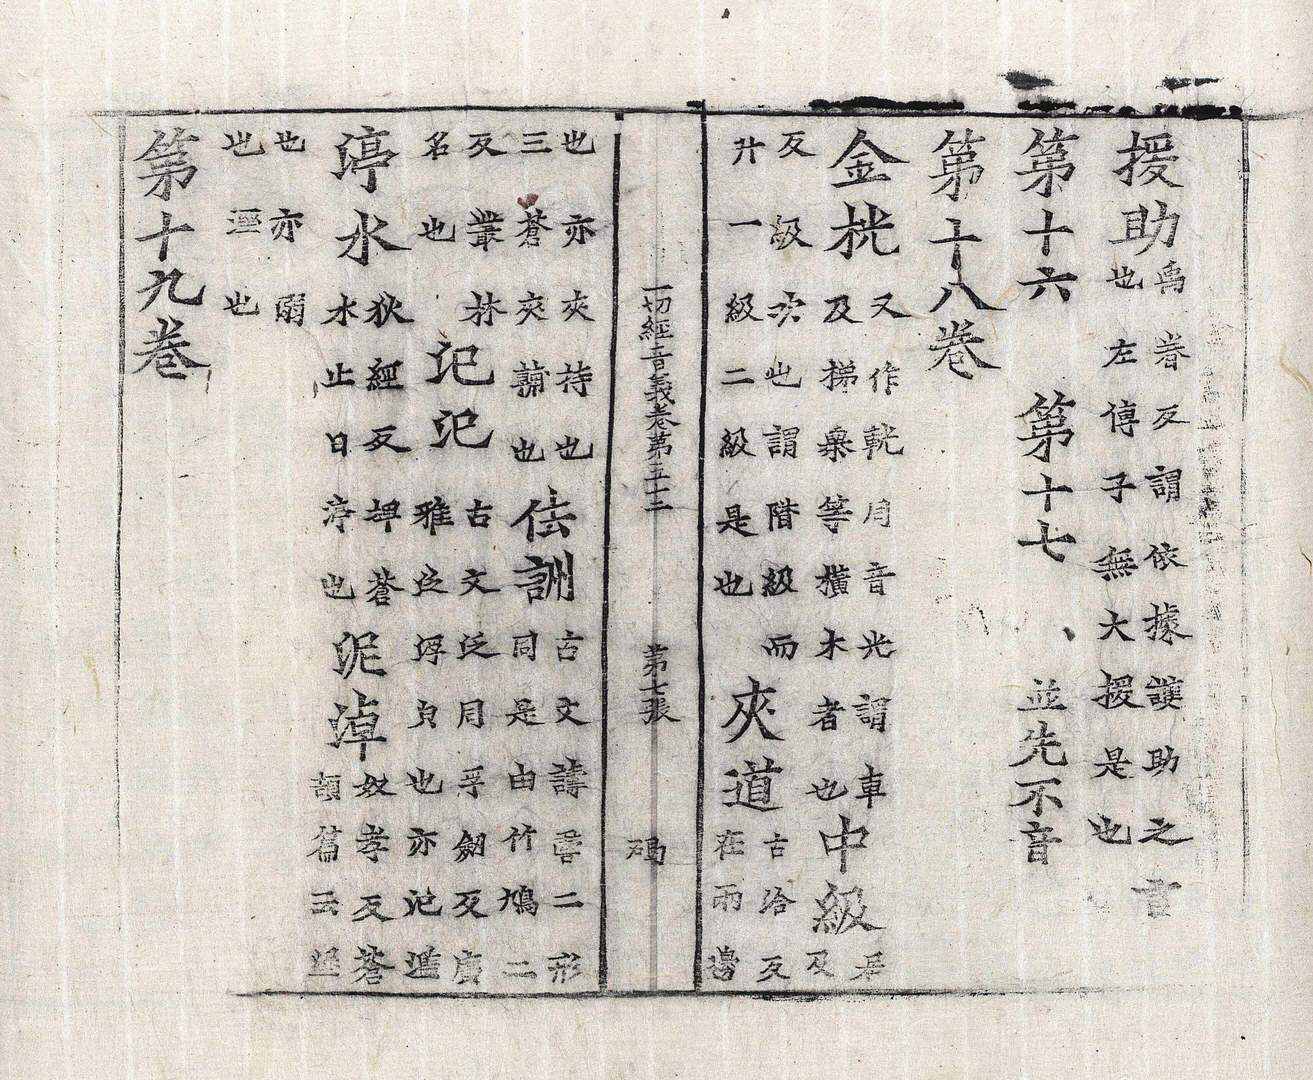 援助禹眷反謂依據護助之言也左傳子無大援是也
第十六 第十七 、並先不音
第十八卷
金桄又作軦同音光謂車及梯桒等橫木者也中級居及
反級次也謂階級而升一級二級是也夾道古洽反在兩邊
一切經音義卷第五十二 第七張 碼
也亦夾持也三蒼夾輔也佉詶古文譸二形同是由竹鳩二
反叢林名也氾氾古文泛同孚劒反廣雅泛浮皃也亦氾濫
渟水狄經反埤蒼水止曰渟也泥淖奴孝反蒼頡篇云深
也亦溺也溼也
第十九卷